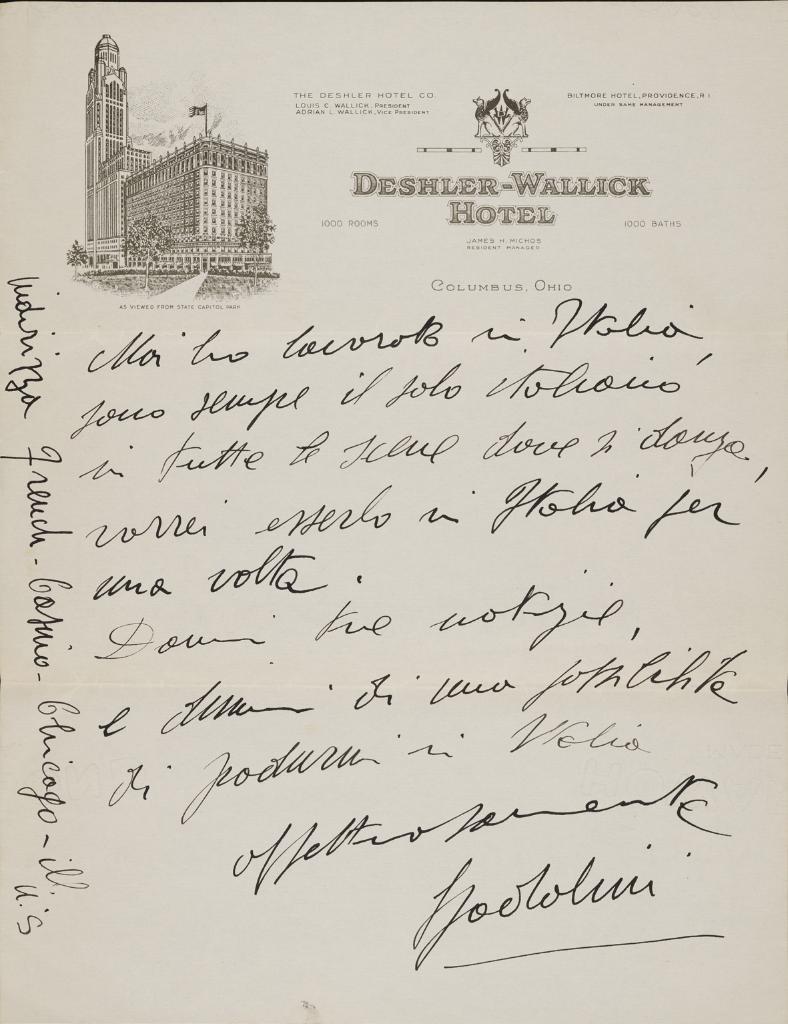 THE DESHLER HOTEL CO.
LOUIS C. WALLICK, PRESIDENT
ADRIAN L. WALLICK, VICE PRESIDENT
BILTMORE HOTEL, PROVIDENCE, R.I.
UNDER SAME MANAGEMENT
DESHLER-WALLICK
HOTEL
1000 ROOMS
1000 BATHS
JAMES H. MICHOS
RESIDENT MANAGER
COLUMBUS, OHIO
AS VIEWED FROM STATE CAPITOL PARK
Mai ho lavorato in Italia,
sono sempre il solo italiano
in tutte le scene dove si danza,
vorrei esserlo in Italia per
una volta.
Dammi tue notizie,
e dimmi di una possibilità
di produrmi in Italia
affettuosamente
Spadolini
Indirizzo French-Casino-Chicago-ill.
U.S